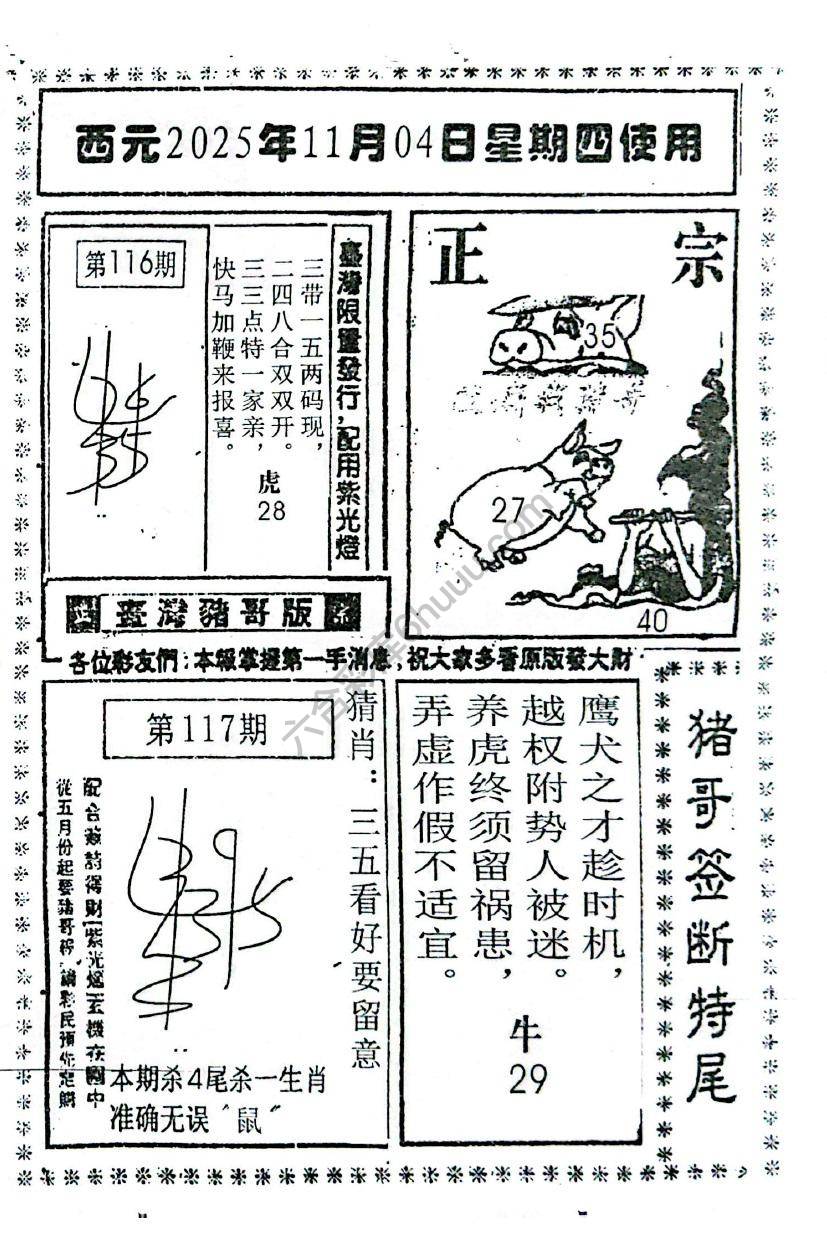 西元2025年11月04日星期四使用
第116期
三带一五两码现，
二四八合双双开。
三三点特一家亲，
快马加鞭来报喜。
虎
28
臺灣限量發行，配用紫光燈
正宗
35
27
40
臺灣豬哥版
各位彩友們：本報掌握第一手消息，祝大家多看原版發大財
第117期
猜肖：三五看好要留意
本期杀4尾杀一生肖
准确无误“鼠”
鹰犬之才趁时机，
越权附势人被迷。
养虎终须留祸患，
弄虚作假不适宜。
牛
29
猪哥签断特尾
六合彩库6huuu.com